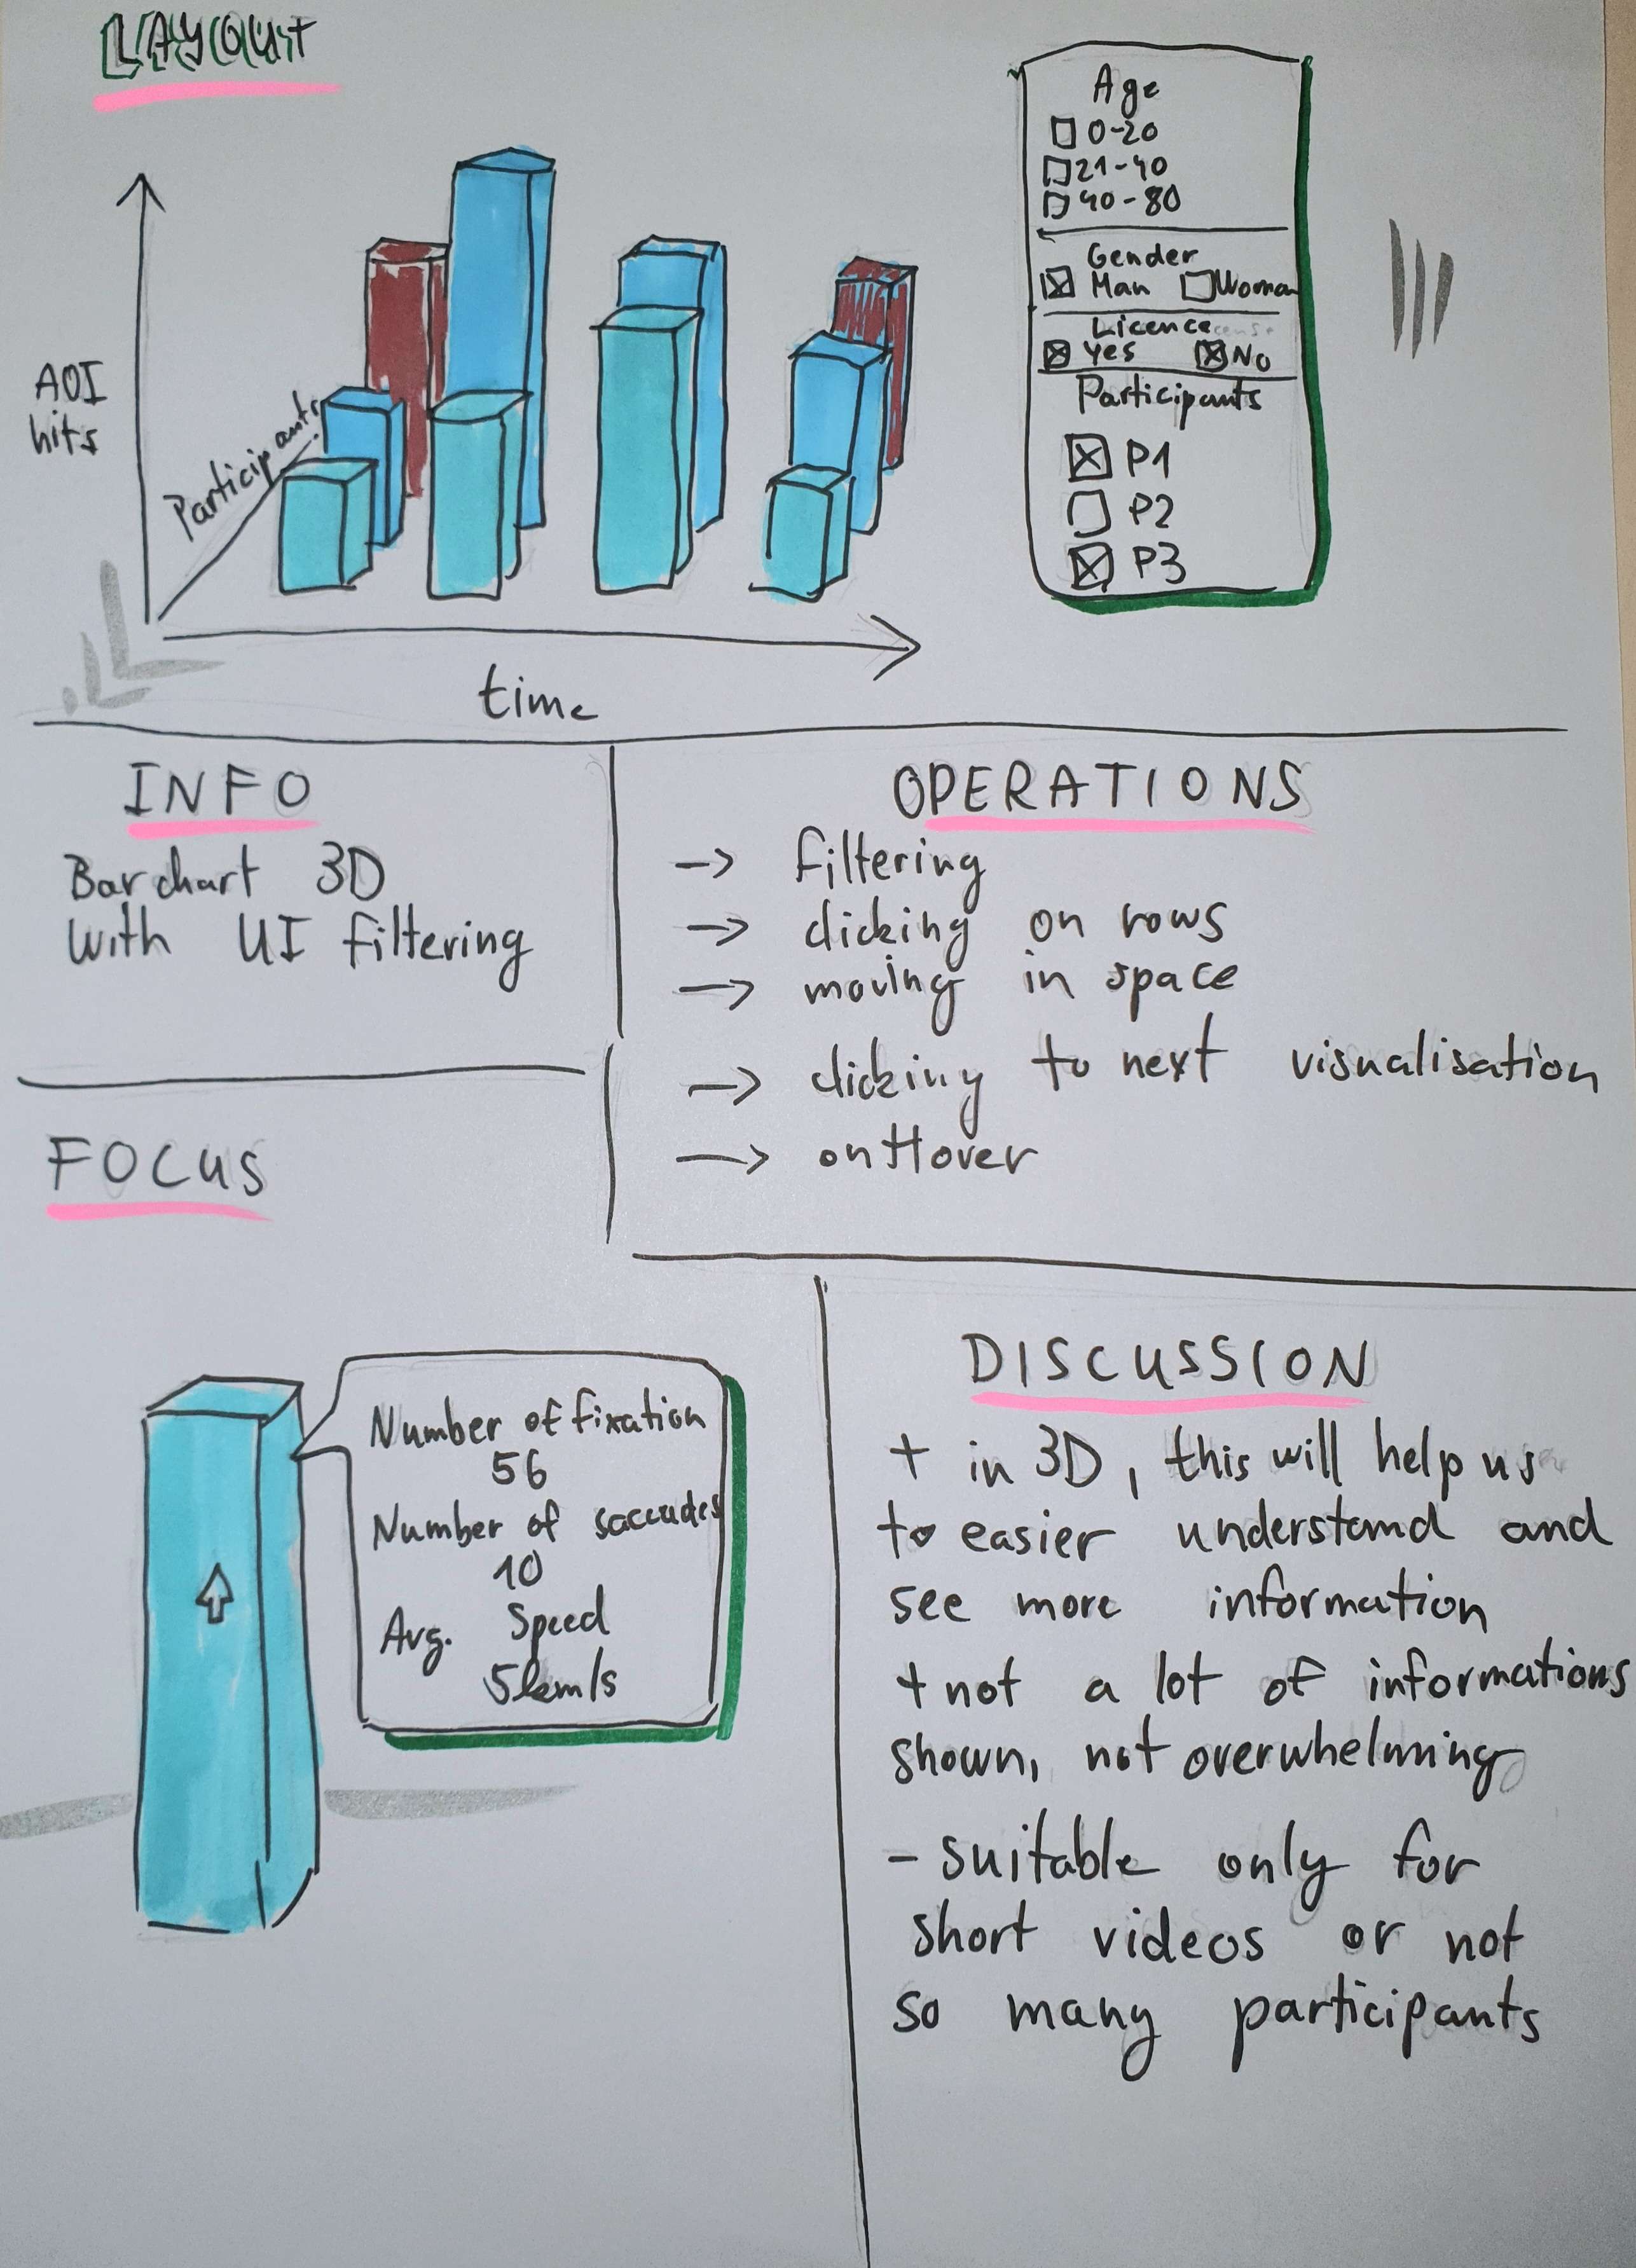 LAYOUT
AOI
hits
Participants
time
Age
0-20
21-40
40-80
Gender
Man Woman
Licence
Yes No
Participants
P1
P2
P3
INFO
Barchart 3D
With UI filtering
OPERATIONS
-> filtering
-> clicking on rows
-> moving in space
-> clicking to next visualisation
-> onHover
FOCUS
Number of fixation
56
Number of saccades
10
Avg. Speed
5km/s
DISCUSSION
+ in 3D, this will help us
to easier understand and
see more information
+ not a lot of informations
shown, not overwhelming
- suitable only for
short videos or not
so many participants